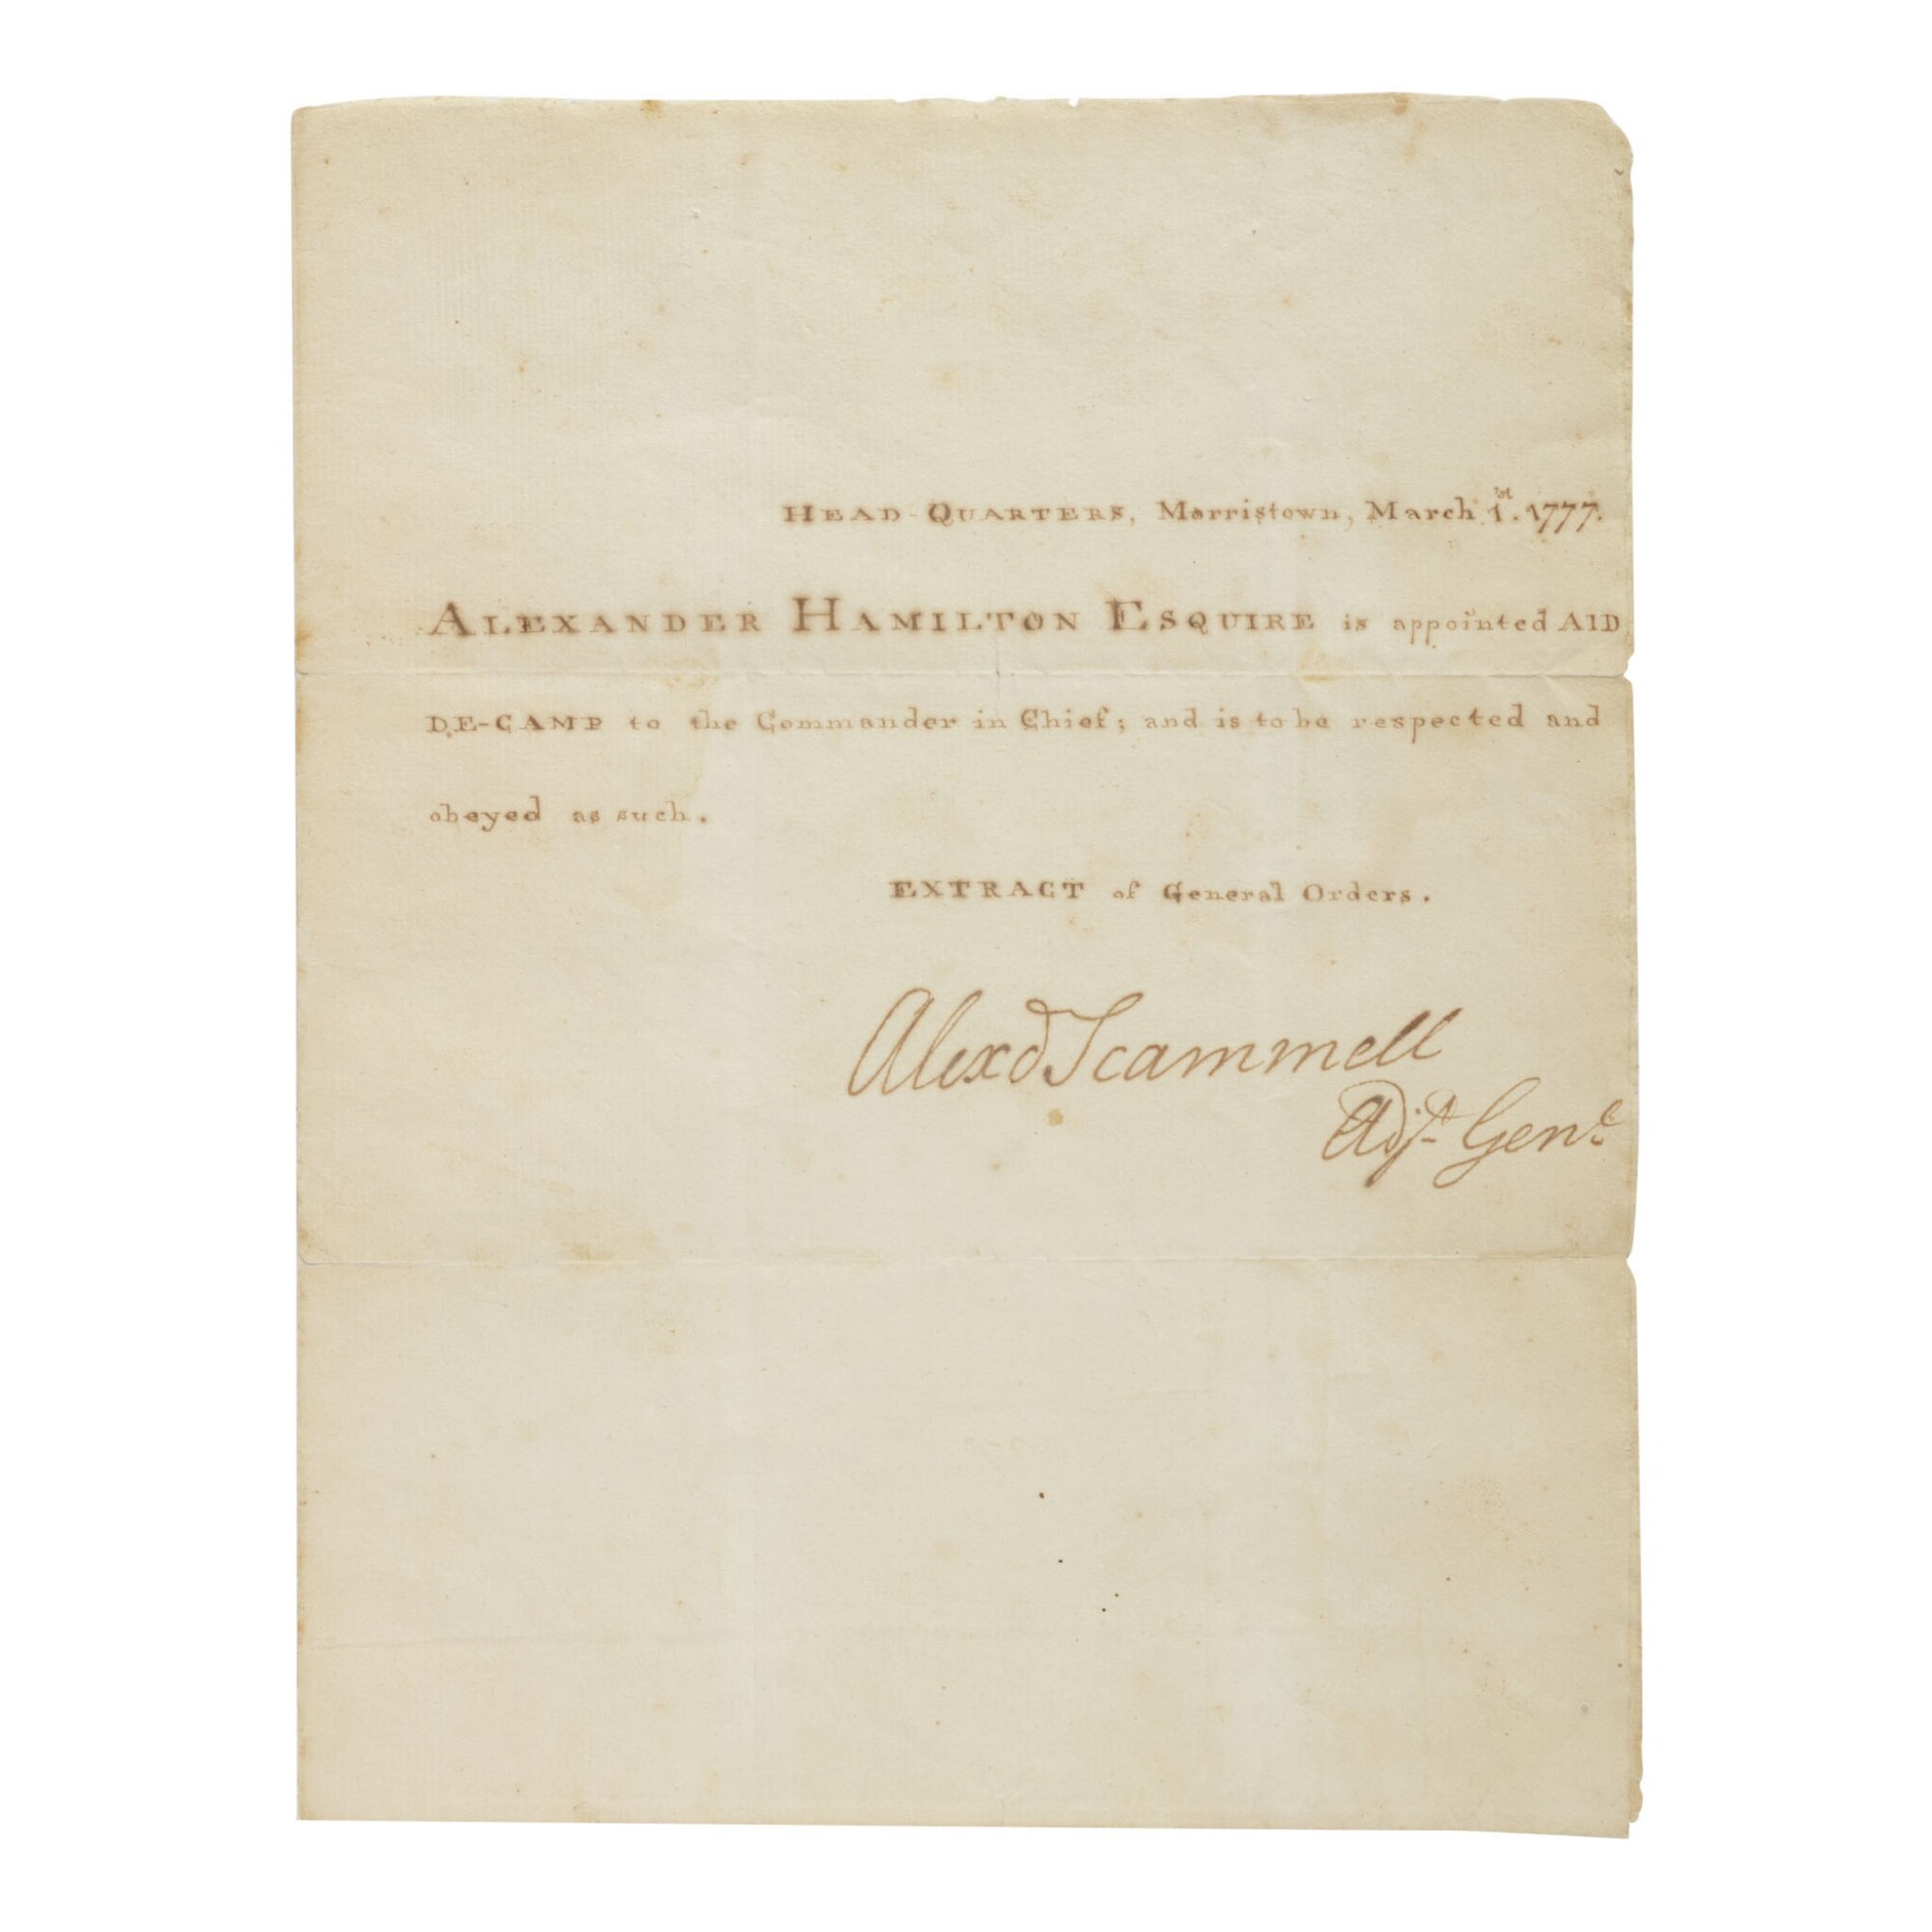 HEAD-QUARTERS, Morristown, March 1st. 1777.
ALEXANDER HAMILTON ESQUIRE is appointed AID
DE-CAMP to the Commander in Chief; and is to be respected and
obeyed as such.
EXTRACT of General Orders.
Alexd Scammell
Adjt Genl